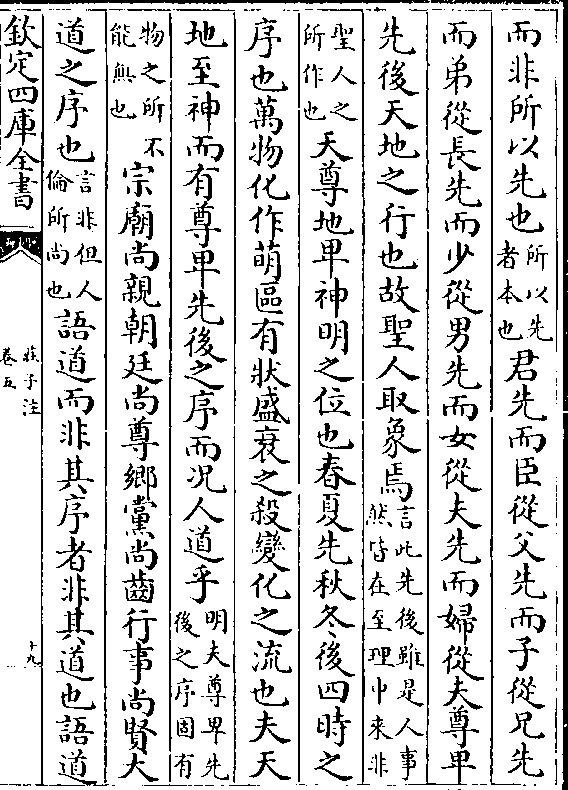 而非所以先也所以先者本也君先而臣從父先而子從兄先
而弟從長先而少從男先而女從夫先而婦從夫尊卑
先後天地之行也故聖人取象焉言此先後雖是人事然皆在至理中來非
聖人之所作也天尊地卑神明之位也春夏先秋冬後四時之
序也萬物化作萌區有狀盛衰之殺變化之流也夫天
地至神而有尊卑先後之序而况人道乎明夫尊卑先後之序固有
物之所不能無也宗廟尚親朝廷尚尊鄉黨尚齒行事尚賢大
道之序也言非但人倫所尚也語道而非其序者非其道也語道
欽定四庫全書
莊子注
卷五
十九